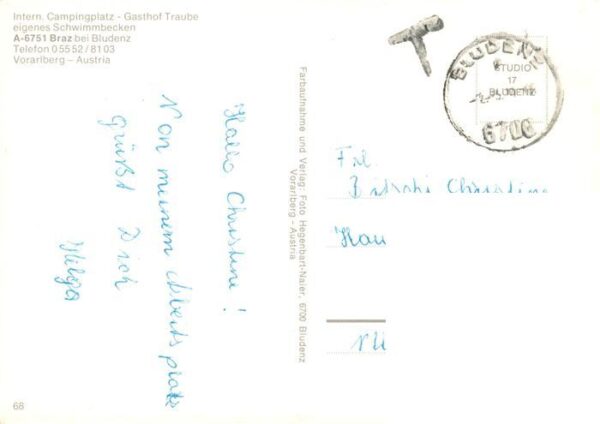 Intern. Campingplatz - Gasthof Traube
eigenes Schwimmbecken
A-6751 Braz bei Bludenz
Telefon 0 55 52 / 81 03
Vorarlberg – Austria
Hallo Christine!
Von meinem Arbeitsplatz
grüßt Dich
Helga
68
Farbaufnahme und Verlag: Foto Hegenbart-Naier, 6700 Bludenz
Vorarlberg – Austria
T
BLUDENZ
6700
STUDIO
17
BLUDENZ
Frl.
Christine